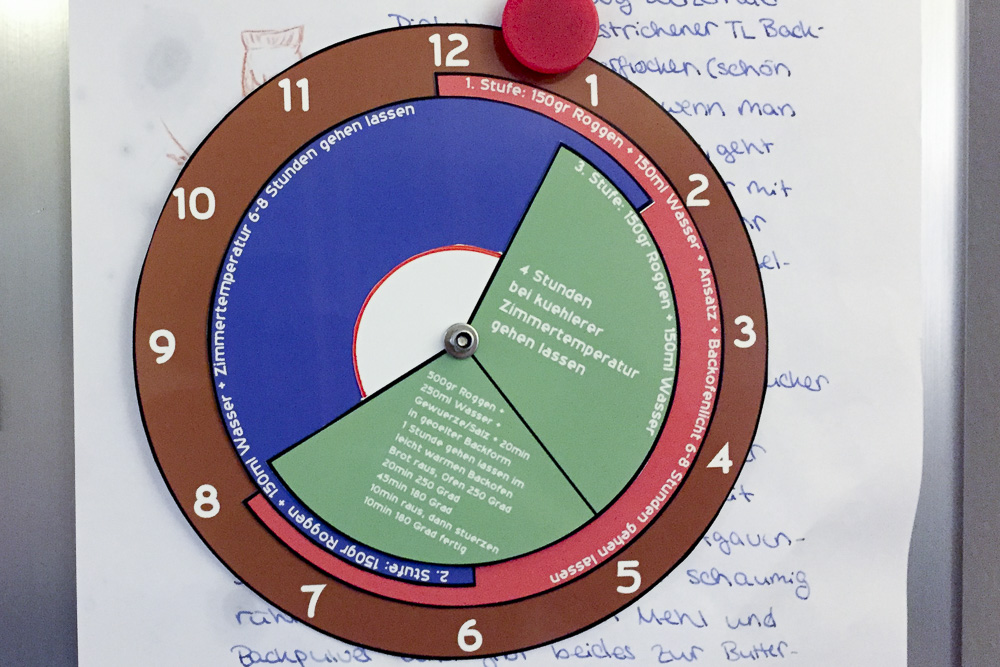 strichener TL Back-
(schön
wenn man
geht
mit
schaumig
Mehl und
Backpulver
beides zur Butter-
12
1
2
3
4
5
6
7
8
9
10
11
1. Stufe: 150gr Roggen + 150ml Wasser + Ansatz + Backofenlicht 6-8 Stunden gehen lassen
2. Stufe: 150gr Roggen + 150ml Wasser + Zimmertemperatur 6-8 Stunden gehen lassen
3. Stufe: 150gr Roggen + 150ml Wasser
4 Stunden
bei kuehlerer
Zimmertemperatur
gehen lassen
500gr Roggen +
250ml Wasser +
Gewuerze/Salz + 20min
in geoelter Backform
1 Stunde gehen lassen im
leicht warmen Backofen
Brot raus, Ofen 250 Grad
20min 250 Grad
45min 180 Grad
10min raus, dann stuerzen
10min 180 Grad fertig